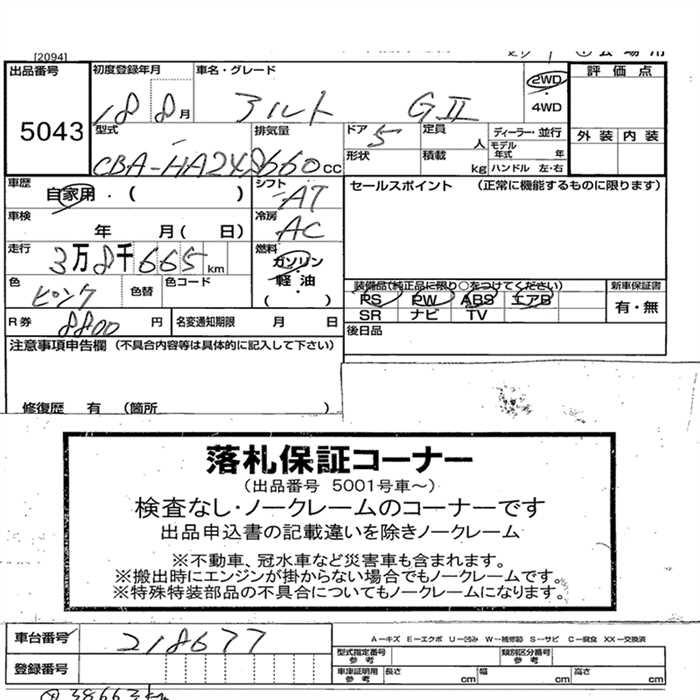 [2094]
出品番号 初度登録年月 車名・グレード 2WD 評価点
5043 18 8月 アルト GⅡ ・
4WD
型式 排気量 ドア 5 定員 人 ディーラー・並行 外装 内装
CBA-HA24S 660cc 形状 積載 kg モデル年式 年
ハンドル 左・右
車歴 自家用・( ) シフト AT セールスポイント (正常に機能するものに限ります)
車検 年 月( 日) 冷房 AC
走行 3万8千665km 燃料 ガソリン・軽油( )
色 ピンク 色替 色コード
装備品(純正品に限り○をつけてください) 新車保証書
PS PW ABS エアB 有・無
SR ナビ TV
R券 8800円 名変通知期限 月 日 後日品
注意事項申告欄 (不具合内容等は具体的に記入して下さい)
修復歴 有 (箇所 )
落札保証コーナー
(出品番号 5001号車~)
検査なし・ノークレームのコーナーです
出品申込書の記載違いを除きノークレーム
※不動車、冠水車など災害車も含まれます。
※搬出時にエンジンが掛からない場合でもノークレームです。
※特殊特装部品の不具合についてもノークレームになります。
車台番号 218677 A-キズ E-エクボ U-凹み W-補修跡 S-サビ C-腐食 XX-交換済
型式指定番号 参考 類別区分番号 参考
登録番号 車庫証明用 参考 長さ cm 幅 cm 高さ cm
38663km